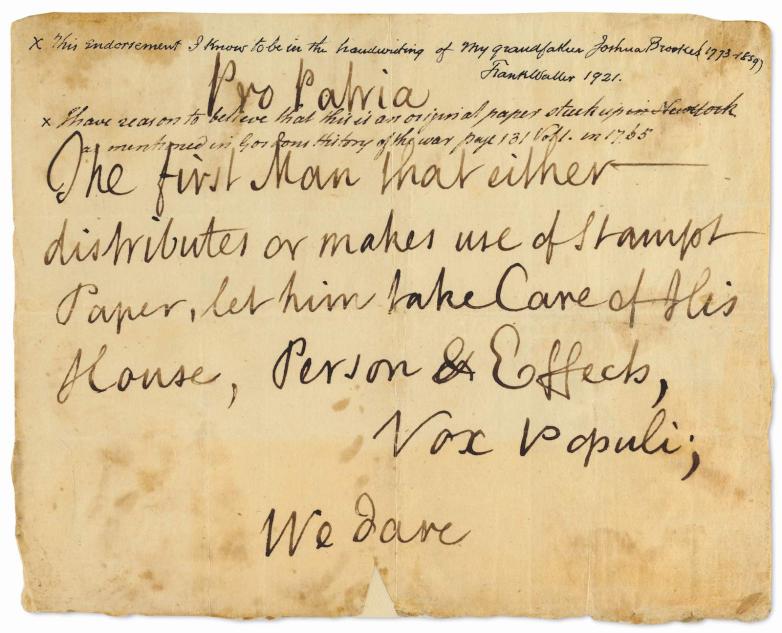 x This endorsement I know to be in the handwriting of my grandfather Joshua Brookes (1773-1859)
Frank Waller 1921.
Pro Patria
x I have reason to believe that this is an original paper stuck up in New York
as mentioned in Gordons History of the war page 131 Vol 1. in 1765
The first Man that either
distributes or makes use of Stampt
Paper, let him take Care of His
House, Person & Effects,
Vox Populi;
We dare